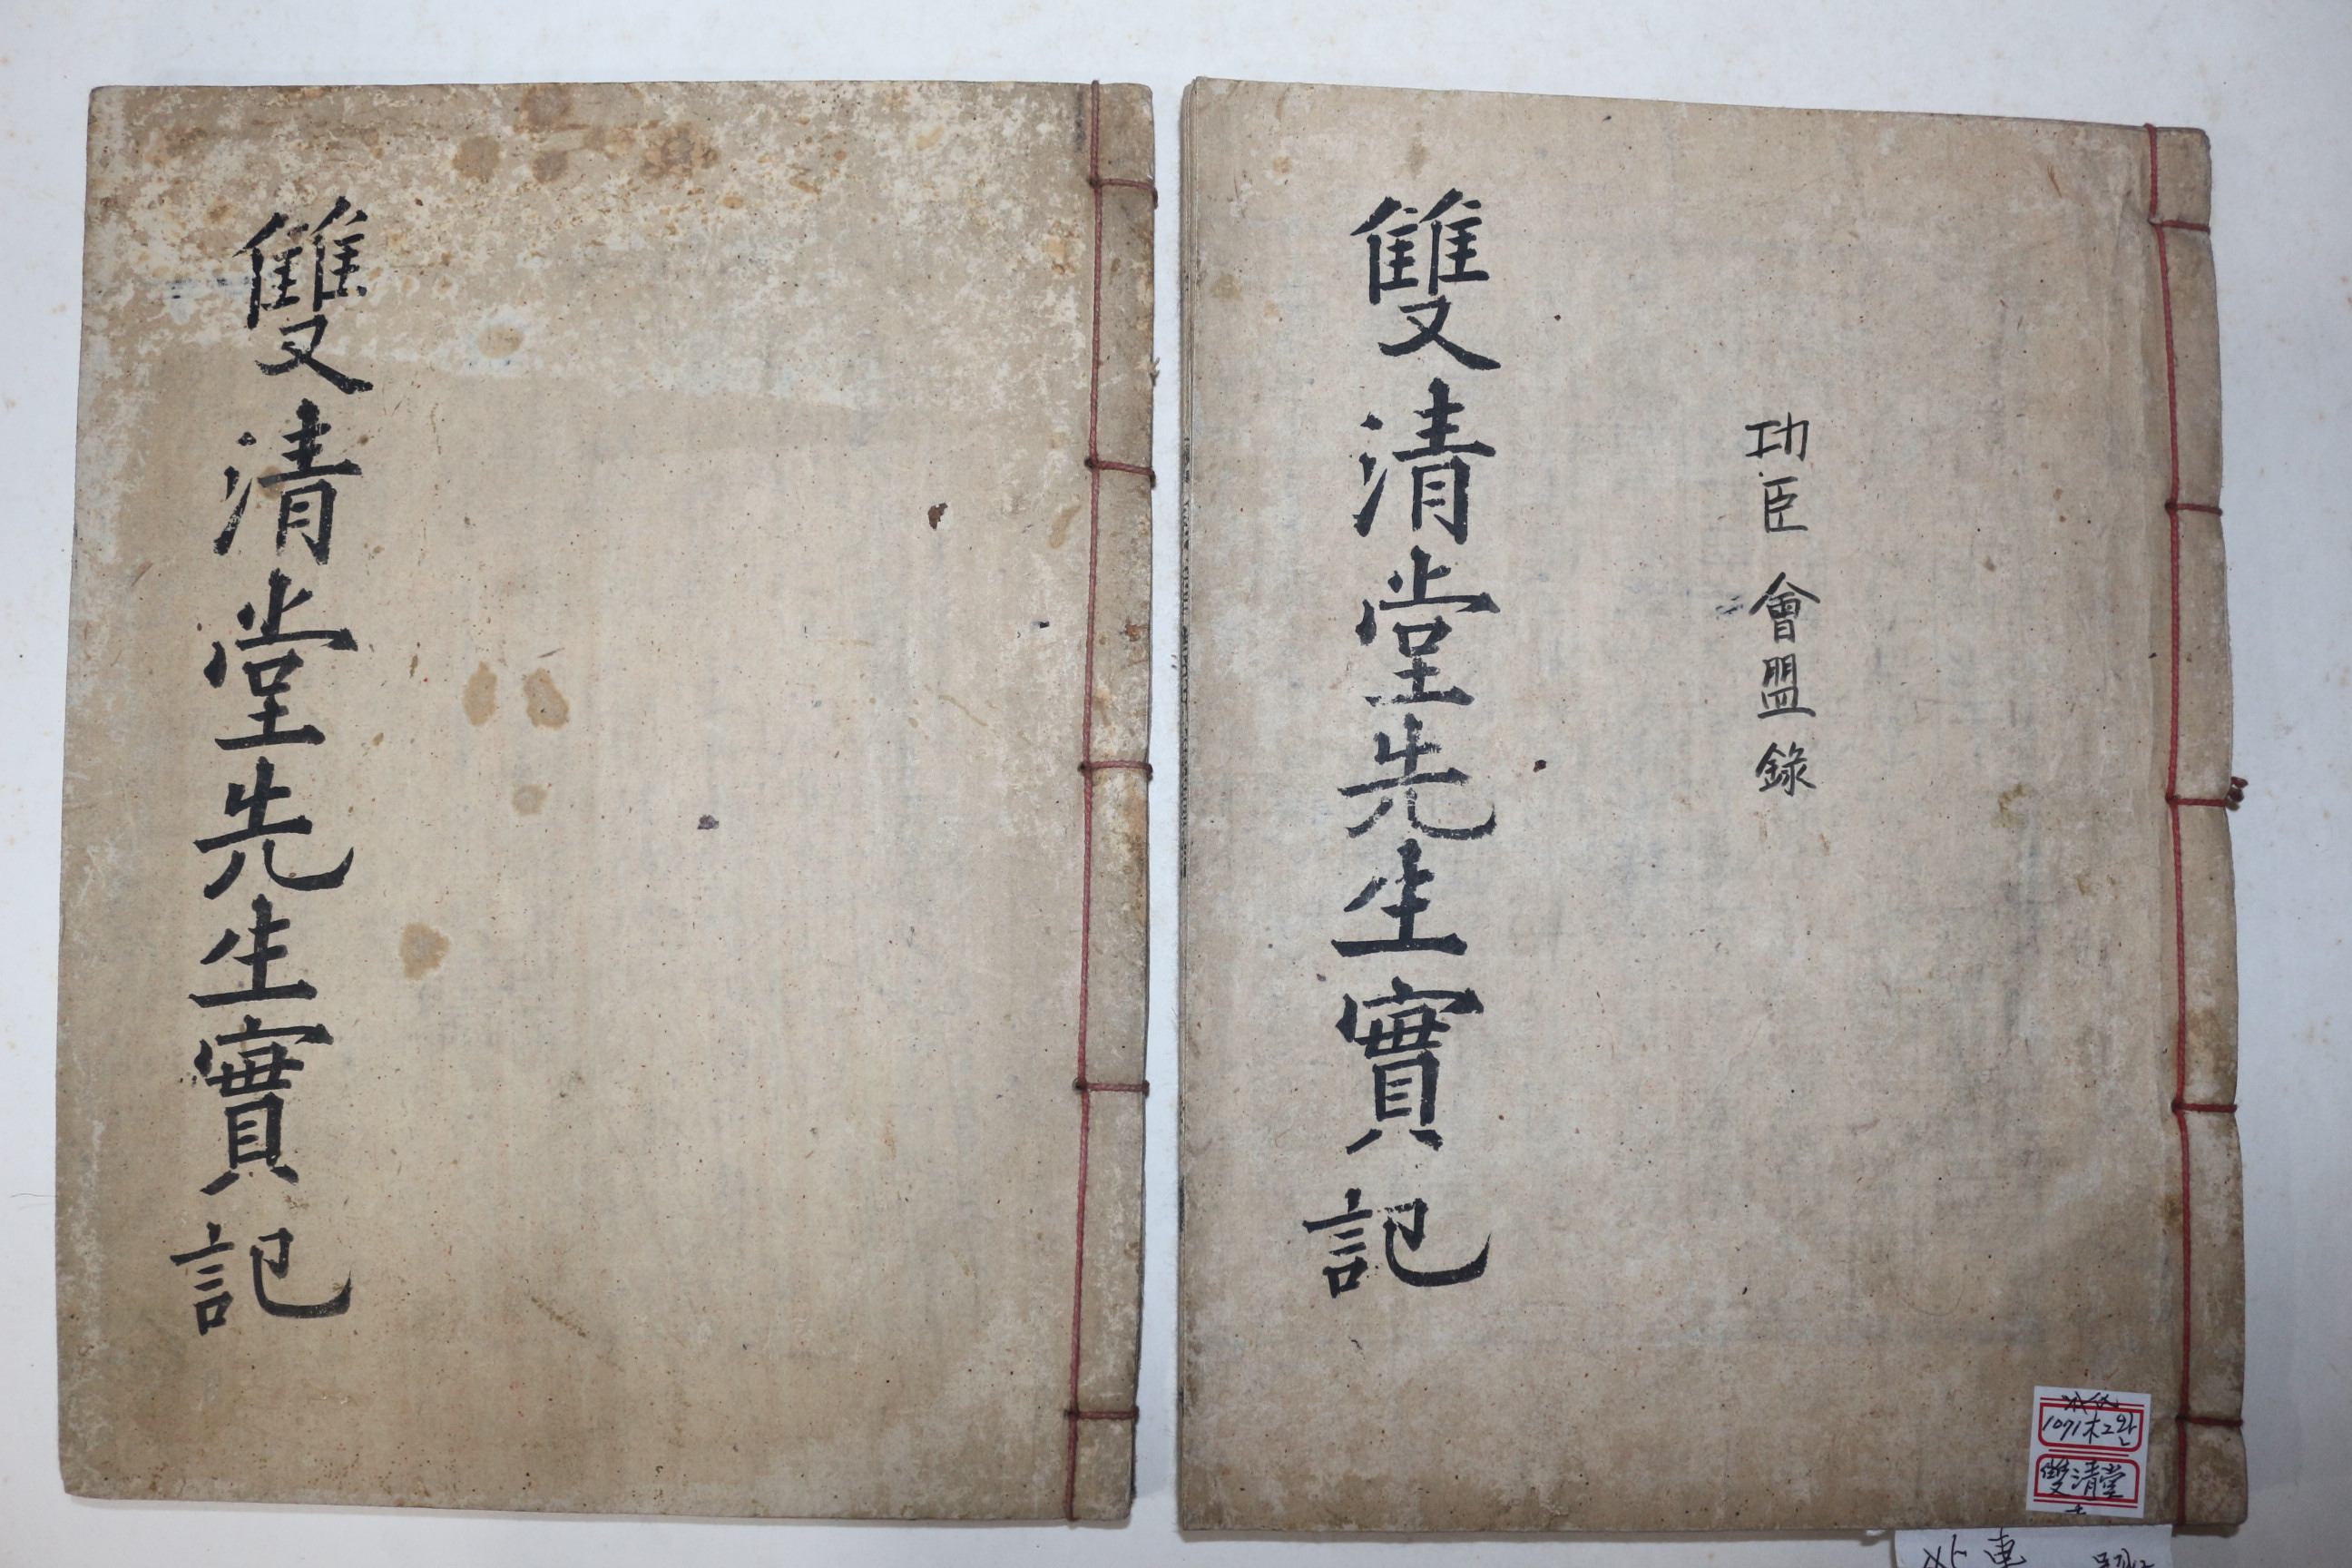 雙清堂先生實記
功臣 會盟錄
雙清堂先生實記
1091木2완
雙清堂